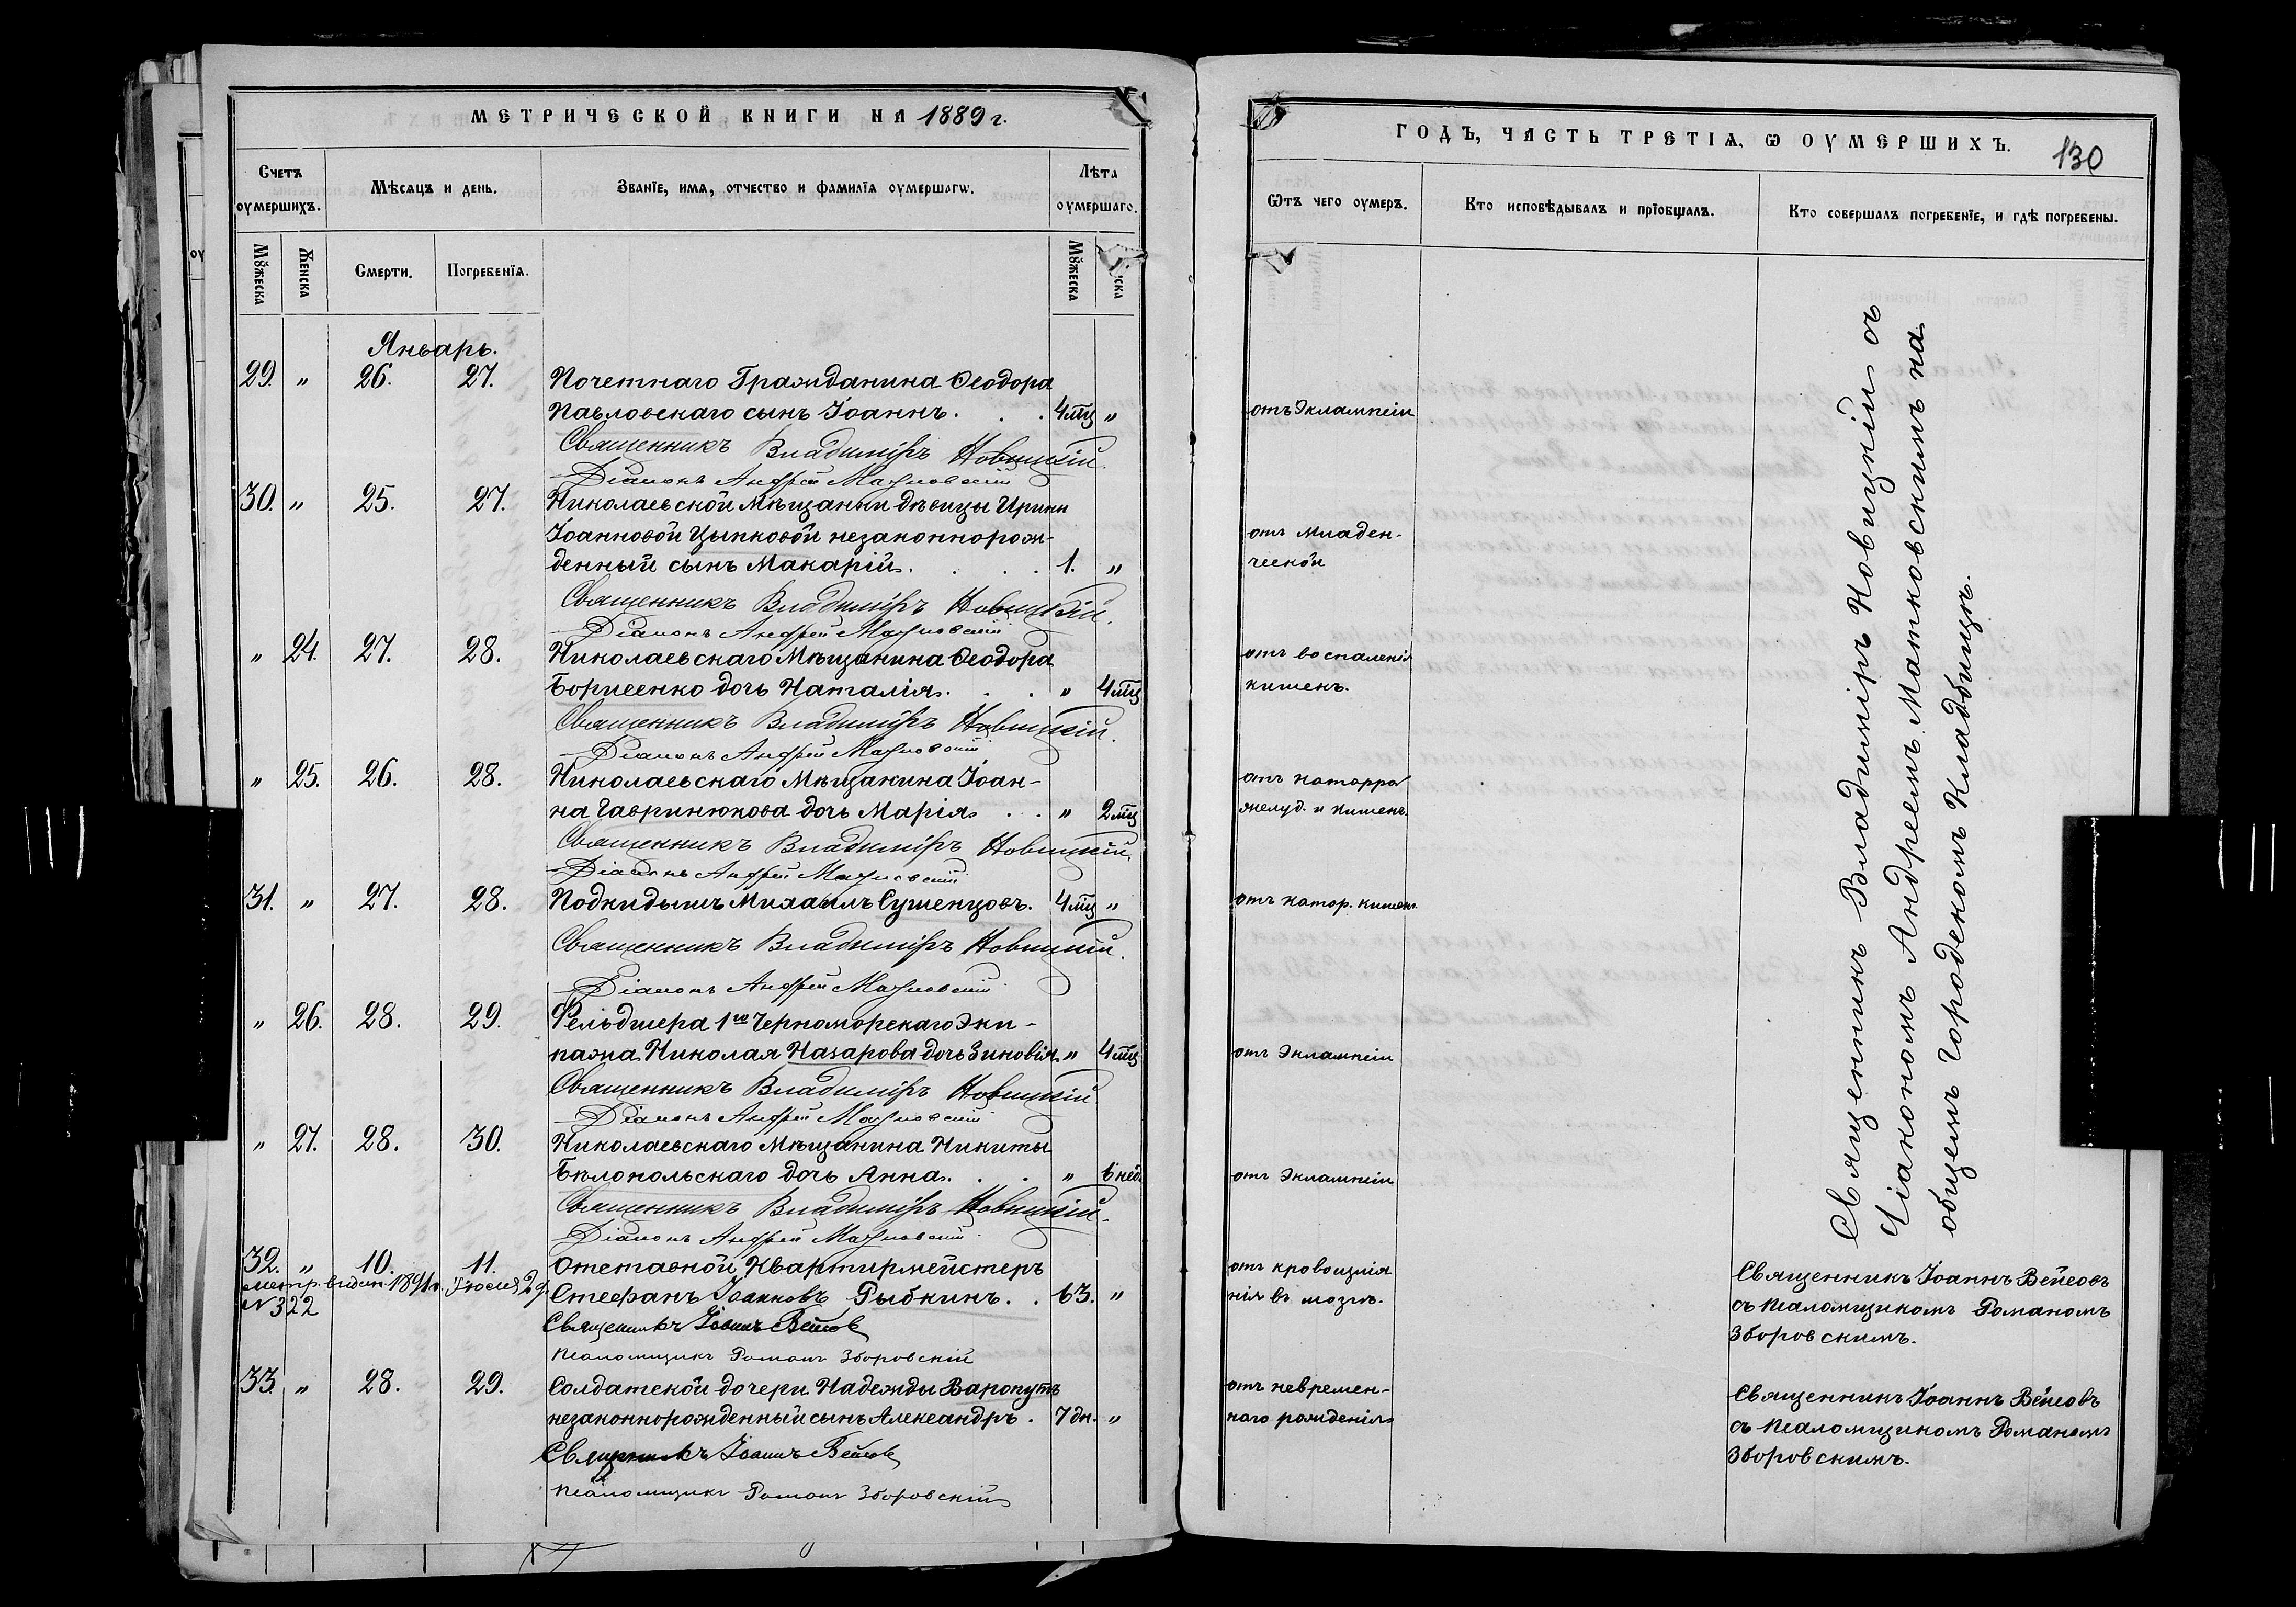 МЕТРИЧЕСКОЙ КНИГИ НА 1889 г.
Счетъ оумершихъ.
Мѣсяцъ и день.
Званїе, имя, отчество и фамилїя оумершагѡ.
Лѣта оумершаго.
Мꙋжеска
Женска
Смерти.
Погребенїя.
Мꙋжеска
ска
Январь.
29. " 26. 27. Почетнаго Гражданина Ѳеодора
Павловскаго сынъ Іоаннъ. . . 4 мц "
Священникъ Владиміръ Новицкій.
Діаконъ Андрей Матковскій
30. " 25. 27. Николаевской Мѣщанки дѣвицы Ирины
Іоанновой Цыпковой незаконнорож-
денный сынъ Макарій. . . . 1. "
Священникъ Владиміръ Новицкій.
Діаконъ Андрей Матковскій
" 24. 27. 28. Николаевскаго Мѣщанина Ѳеодора
Борисенко дочь Наталія. . . " 4 мц
Священникъ Владиміръ Новицкій.
Діаконъ Андрей Матковскій
" 25. 26. 28. Николаевскаго Мѣщанина Іоан-
на Гавринюкова дочь Марія. . . " 2 мц
Священникъ Владиміръ Новицкій.
Діаконъ Андрей Матковскій
31. " 27. 28. Подкидышъ Михаилъ Сушенцовъ. 4 мц "
Священникъ Владиміръ Новицкій.
Діаконъ Андрей Матковскій
" 26. 28. 29. Фельдшера 1го Черноморскаго Эки-
пажа Николая Назарова дочь Зиновія " 4 мц
Священникъ Владиміръ Новицкій.
Діаконъ Андрей Матковскій
" 27. 28. 30. Николаевскаго Мѣщанина Никиты
Бѣлопольскаго дочь Анна. . . " 6 нед.
Священникъ Владиміръ Новицкій.
Діаконъ Андрей Матковскій
32. " 10. 11. Отставной Квартирмейстеръ
метр. видан. 1891 г. Іюля 29 Стефанъ Іоанновъ Рыбкинъ. . 63. "
№ 322
Священникъ Іоаннъ Вейсовъ
Псаломщикъ Романъ Зборовскій
33. " 28. 29. Солдатской дочери Надежды Варопутъ
незаконнорожденный сынъ Александръ. 7 дн. "
Священникъ Іоаннъ Вейсовъ
Псаломщикъ Романъ Зборовскій
ГОДЪ, ЧАСТЬ ТРЕТІЯ, Ѡ ОУМЕРШИХЪ.
130
Ѿтъ чего оумеръ.
Кто исповѣдывалъ и прїобщалъ.
Кто совершалъ погребенїе, и гдѣ погребены.
отъ Эклампсіи
отъ младен-
ческой
отъ воспаленія
кишекъ.
отъ катарра
желуд. и кишекъ.
отъ катар. кишекъ
отъ Эклампсіи
отъ Эклампсіи
отъ кровоизлія
нія въ мозгъ.
отъ невремен-
наго рожденія
Священникъ Владиміръ Новицкій съ
Діакономъ Андреемъ Матковскимъ на
общемъ городскомъ кладбищѣ.
Священникъ Іоаннъ Вейсовъ
съ псаломщикомъ Романомъ
Зборовскимъ.
Священникъ Іоаннъ Вейсовъ
съ псаломщикомъ Романомъ
Зборовскимъ.